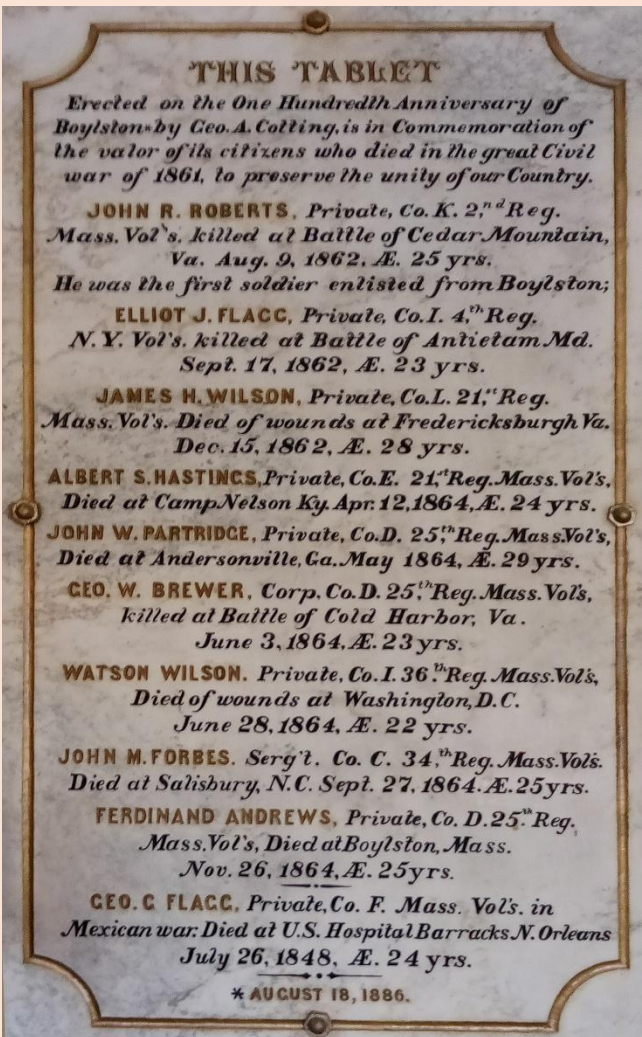 THIS TABLET
Erected on the One Hundredth Anniversary of
Boylston* by Geo. A. Cotting, is in Commemoration of
the valor of its citizens who died in the great Civil
war of 1861, to preserve the unity of our Country.
JOHN R. ROBERTS, Private, Co. K. 2,nd Reg.
Mass. Vol's. killed at Battle of Cedar Mountain,
Va. Aug. 9, 1862, Æ. 25 yrs.
He was the first soldier enlisted from Boylston;
ELLIOT J. FLAGG, Private, Co. I. 4,th Reg.
N. Y. Vol's. killed at Battle of Antietam Md.
Sept. 17, 1862, Æ. 23 yrs.
JAMES H. WILSON, Private, Co. L. 21,st Reg.
Mass. Vol's. Died of wounds at Fredericksburgh Va.
Dec. 15, 1862, Æ. 28 yrs.
ALBERT S. HASTINGS, Private, Co. E. 21,st Reg. Mass. Vol's,
Died at Camp Nelson Ky. Apr. 12, 1864, Æ. 24 yrs.
JOHN W. PARTRIDGE, Private, Co. D. 25,th Reg. Mass. Vol's,
Died at Andersonville, Ga. May 1864, Æ. 29 yrs.
GEO. W. BREWER, Corp. Co. D. 25,th Reg. Mass. Vol's,
killed at Battle of Cold Harbor, Va.
June 3, 1864, Æ. 23 yrs.
WATSON WILSON. Private, Co. I. 36,th Reg. Mass. Vol's,
Died of wounds at Washington, D. C.
June 28, 1864, Æ. 22 yrs.
JOHN M. FORBES. Serg't. Co. C. 34,th Reg. Mass. Vol's.
Died at Salisbury, N. C. Sept. 27, 1864. Æ. 25 yrs.
FERDINAND ANDREWS, Private, Co. D. 25th Reg.
Mass. Vol's, Died at Boylston, Mass.
Nov. 26, 1864, Æ. 25 yrs.
GEO. C FLAGG, Private, Co. F. Mass. Vol's. in
Mexican war. Died at U.S. Hospital Barracks N. Orleans
July 26, 1848, Æ. 24 yrs.
* AUGUST 18, 1886.